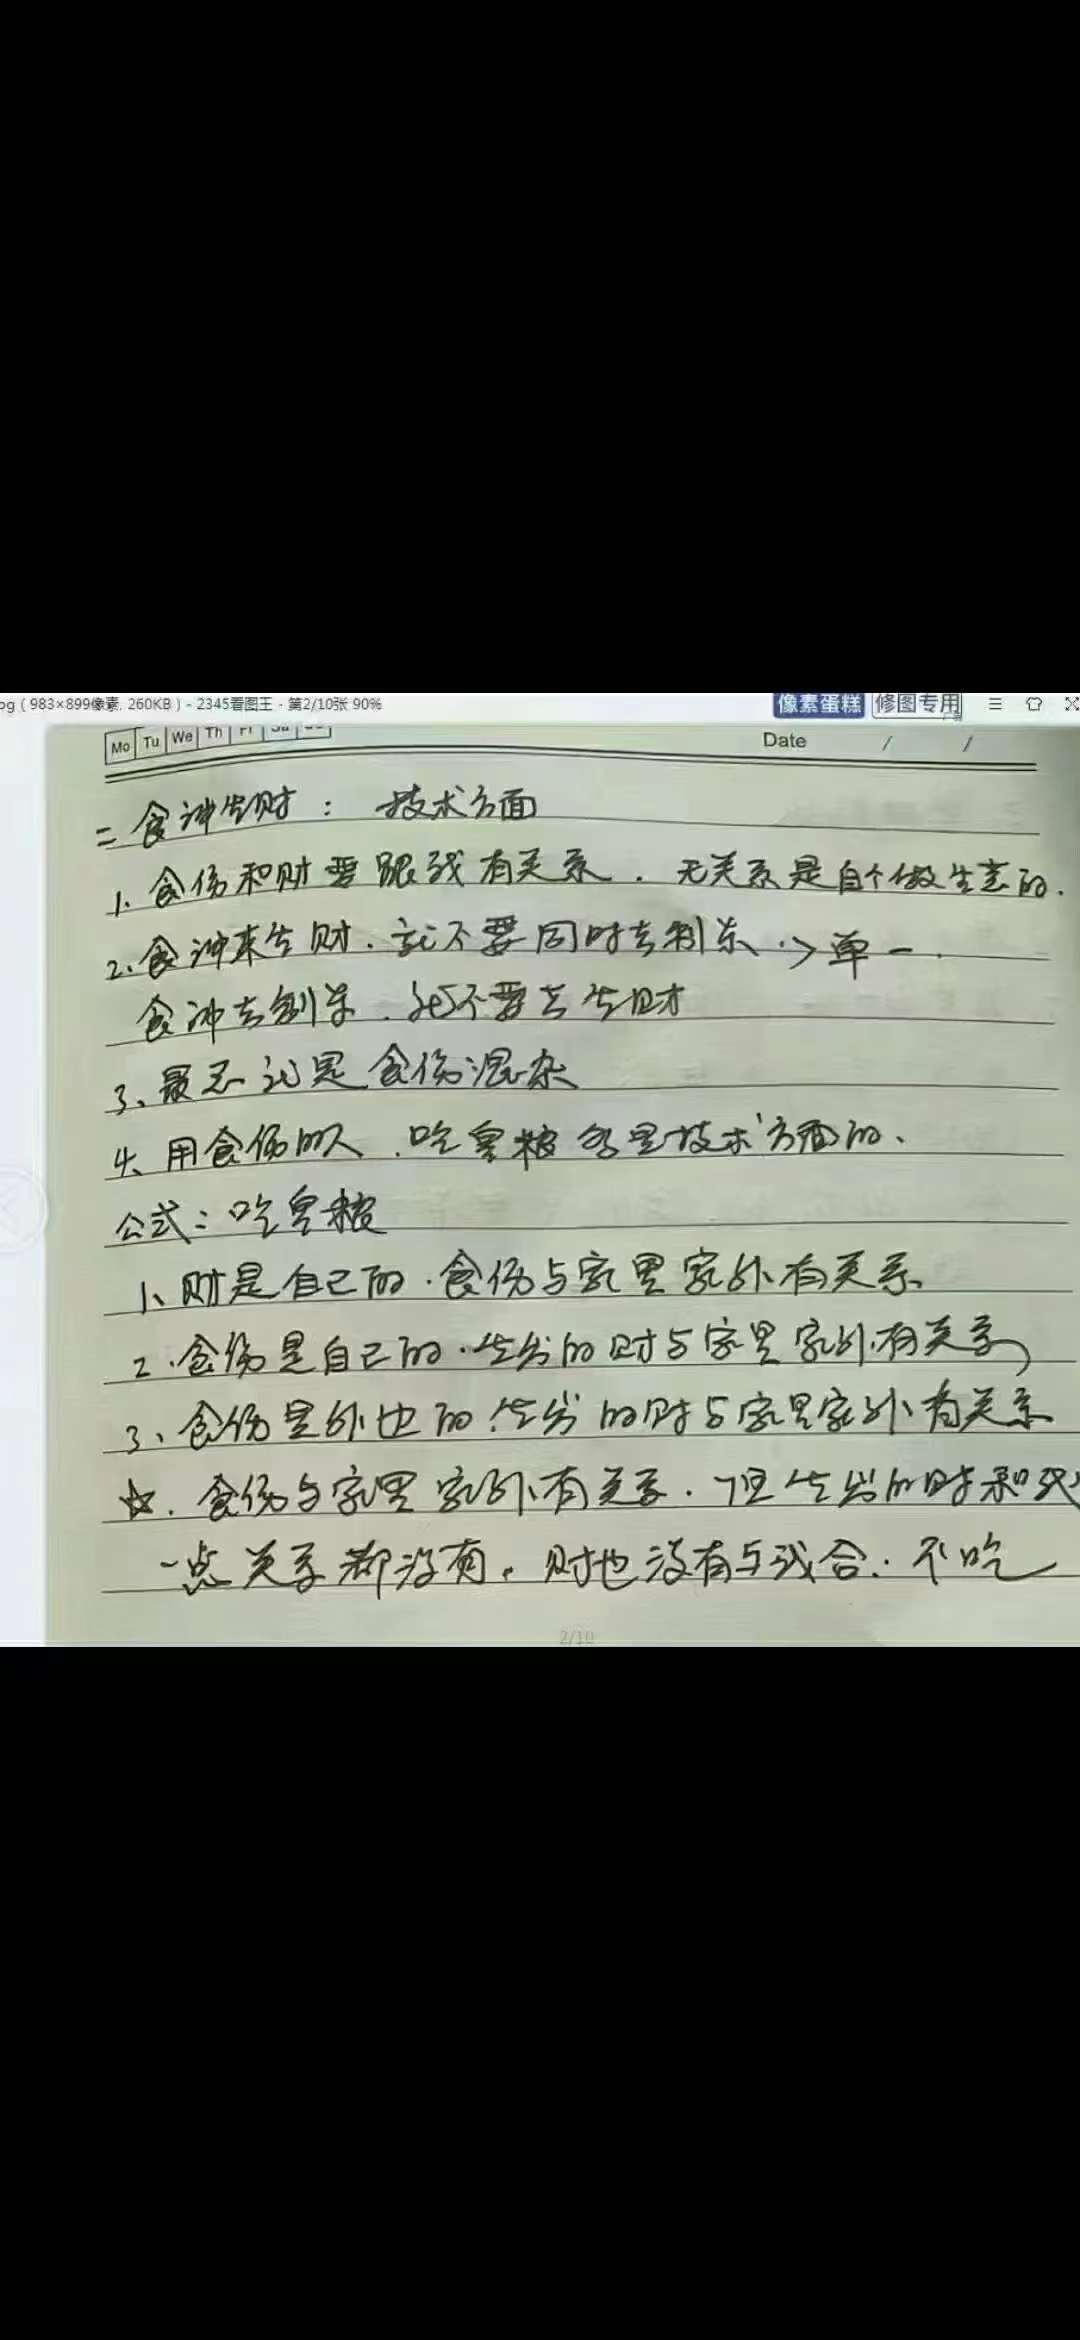 og（983×899像素, 260KB）- 2345看图王 - 第2/10张 90%
像素蛋糕 修图专用
Mo Tu We Th Fr Sa Date / /
二食神生财：技术方面
1、食伤和财要跟我有关系．无关系是自个做生意的．
2、食神来生财．就不要同时去制杀．＞单一．
食神去制杀．就不要去生财
3、最忌就是食伤混杂
4、用食伤的人．吃皇粮多是技术方面的、
公式：吃皇粮
1、财是自己的．食伤与家里家外有关系
2．食伤是自己的．生出的财与家里家外有关系
3、食伤是外边的．生出的财与家里家外有关系
☆．食伤与家里家外有关系．但生出的财和我
一点关系都没有。财也没有与我合．不吃
2/10